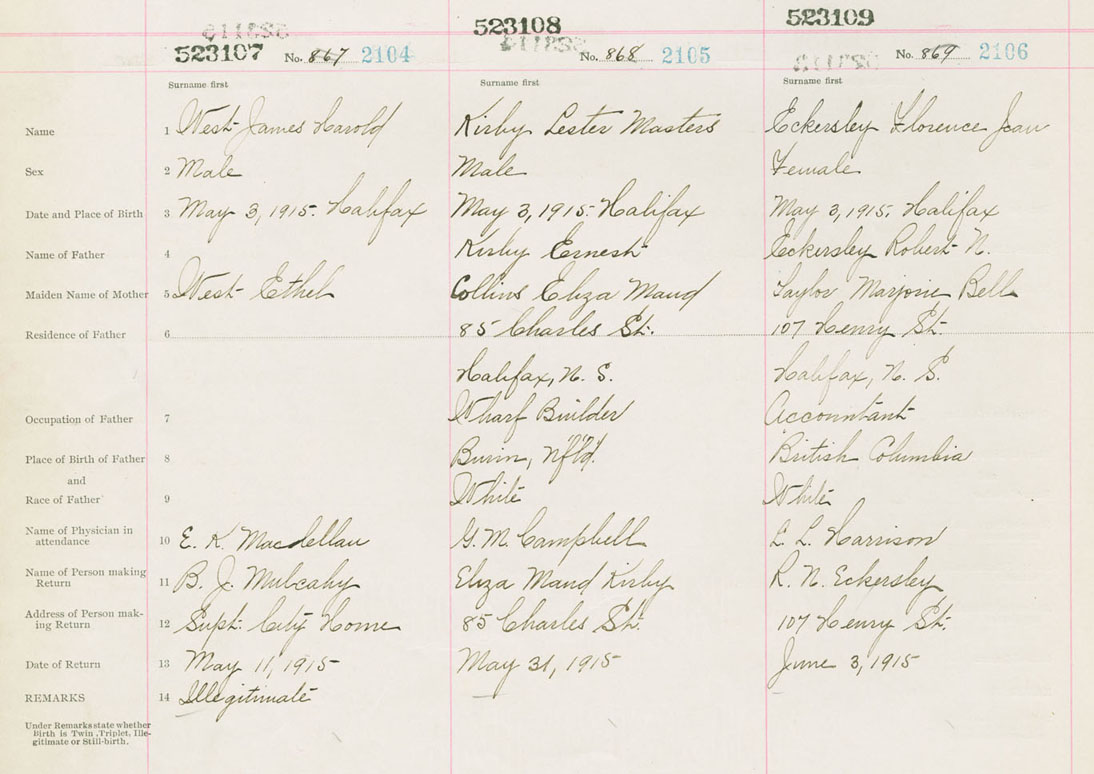 523107 No. 867 2104
523108 No. 868 2105
523109 No. 869 2106
Surname first Surname first Surname first
Name 1 West James Harold Kirby Lester Masters Eckersley Florence Jean
Sex 2 Male Male Female
Date and Place of Birth 3 May 3, 1915. Halifax May 3, 1915. Halifax May 3, 1915. Halifax
Name of Father 4 Kirby Ernest Eckersley Robert N.
Maiden Name of Mother 5 West Ethel Collins Eliza Maud Taylor Marjorie Bell
Residence of Father 6 85 Charles St. 107 Henry St.
Halifax, N. S. Halifax, N. S.
Occupation of Father 7 Wharf Builder Accountant
Place of Birth of Father 8 Burin, Nfld. British Columbia
and
Race of Father 9 White White
Name of Physician in
attendance 10 E. K. Maclellan G. M. Campbell L. L. Harrison
Name of Person making
Return 11 B. J. Mulcahy Eliza Maud Kirby R. N. Eckersley
Address of Person mak-
ing Return 12 Supt. City Home 85 Charles St. 107 Henry St.
Date of Return 13 May 11, 1915 May 31, 1915 June 3, 1915
REMARKS 14 Illegitimate
Under Remarks state whether
Birth is Twin, Triplet, Ille-
gitimate or Still-birth.